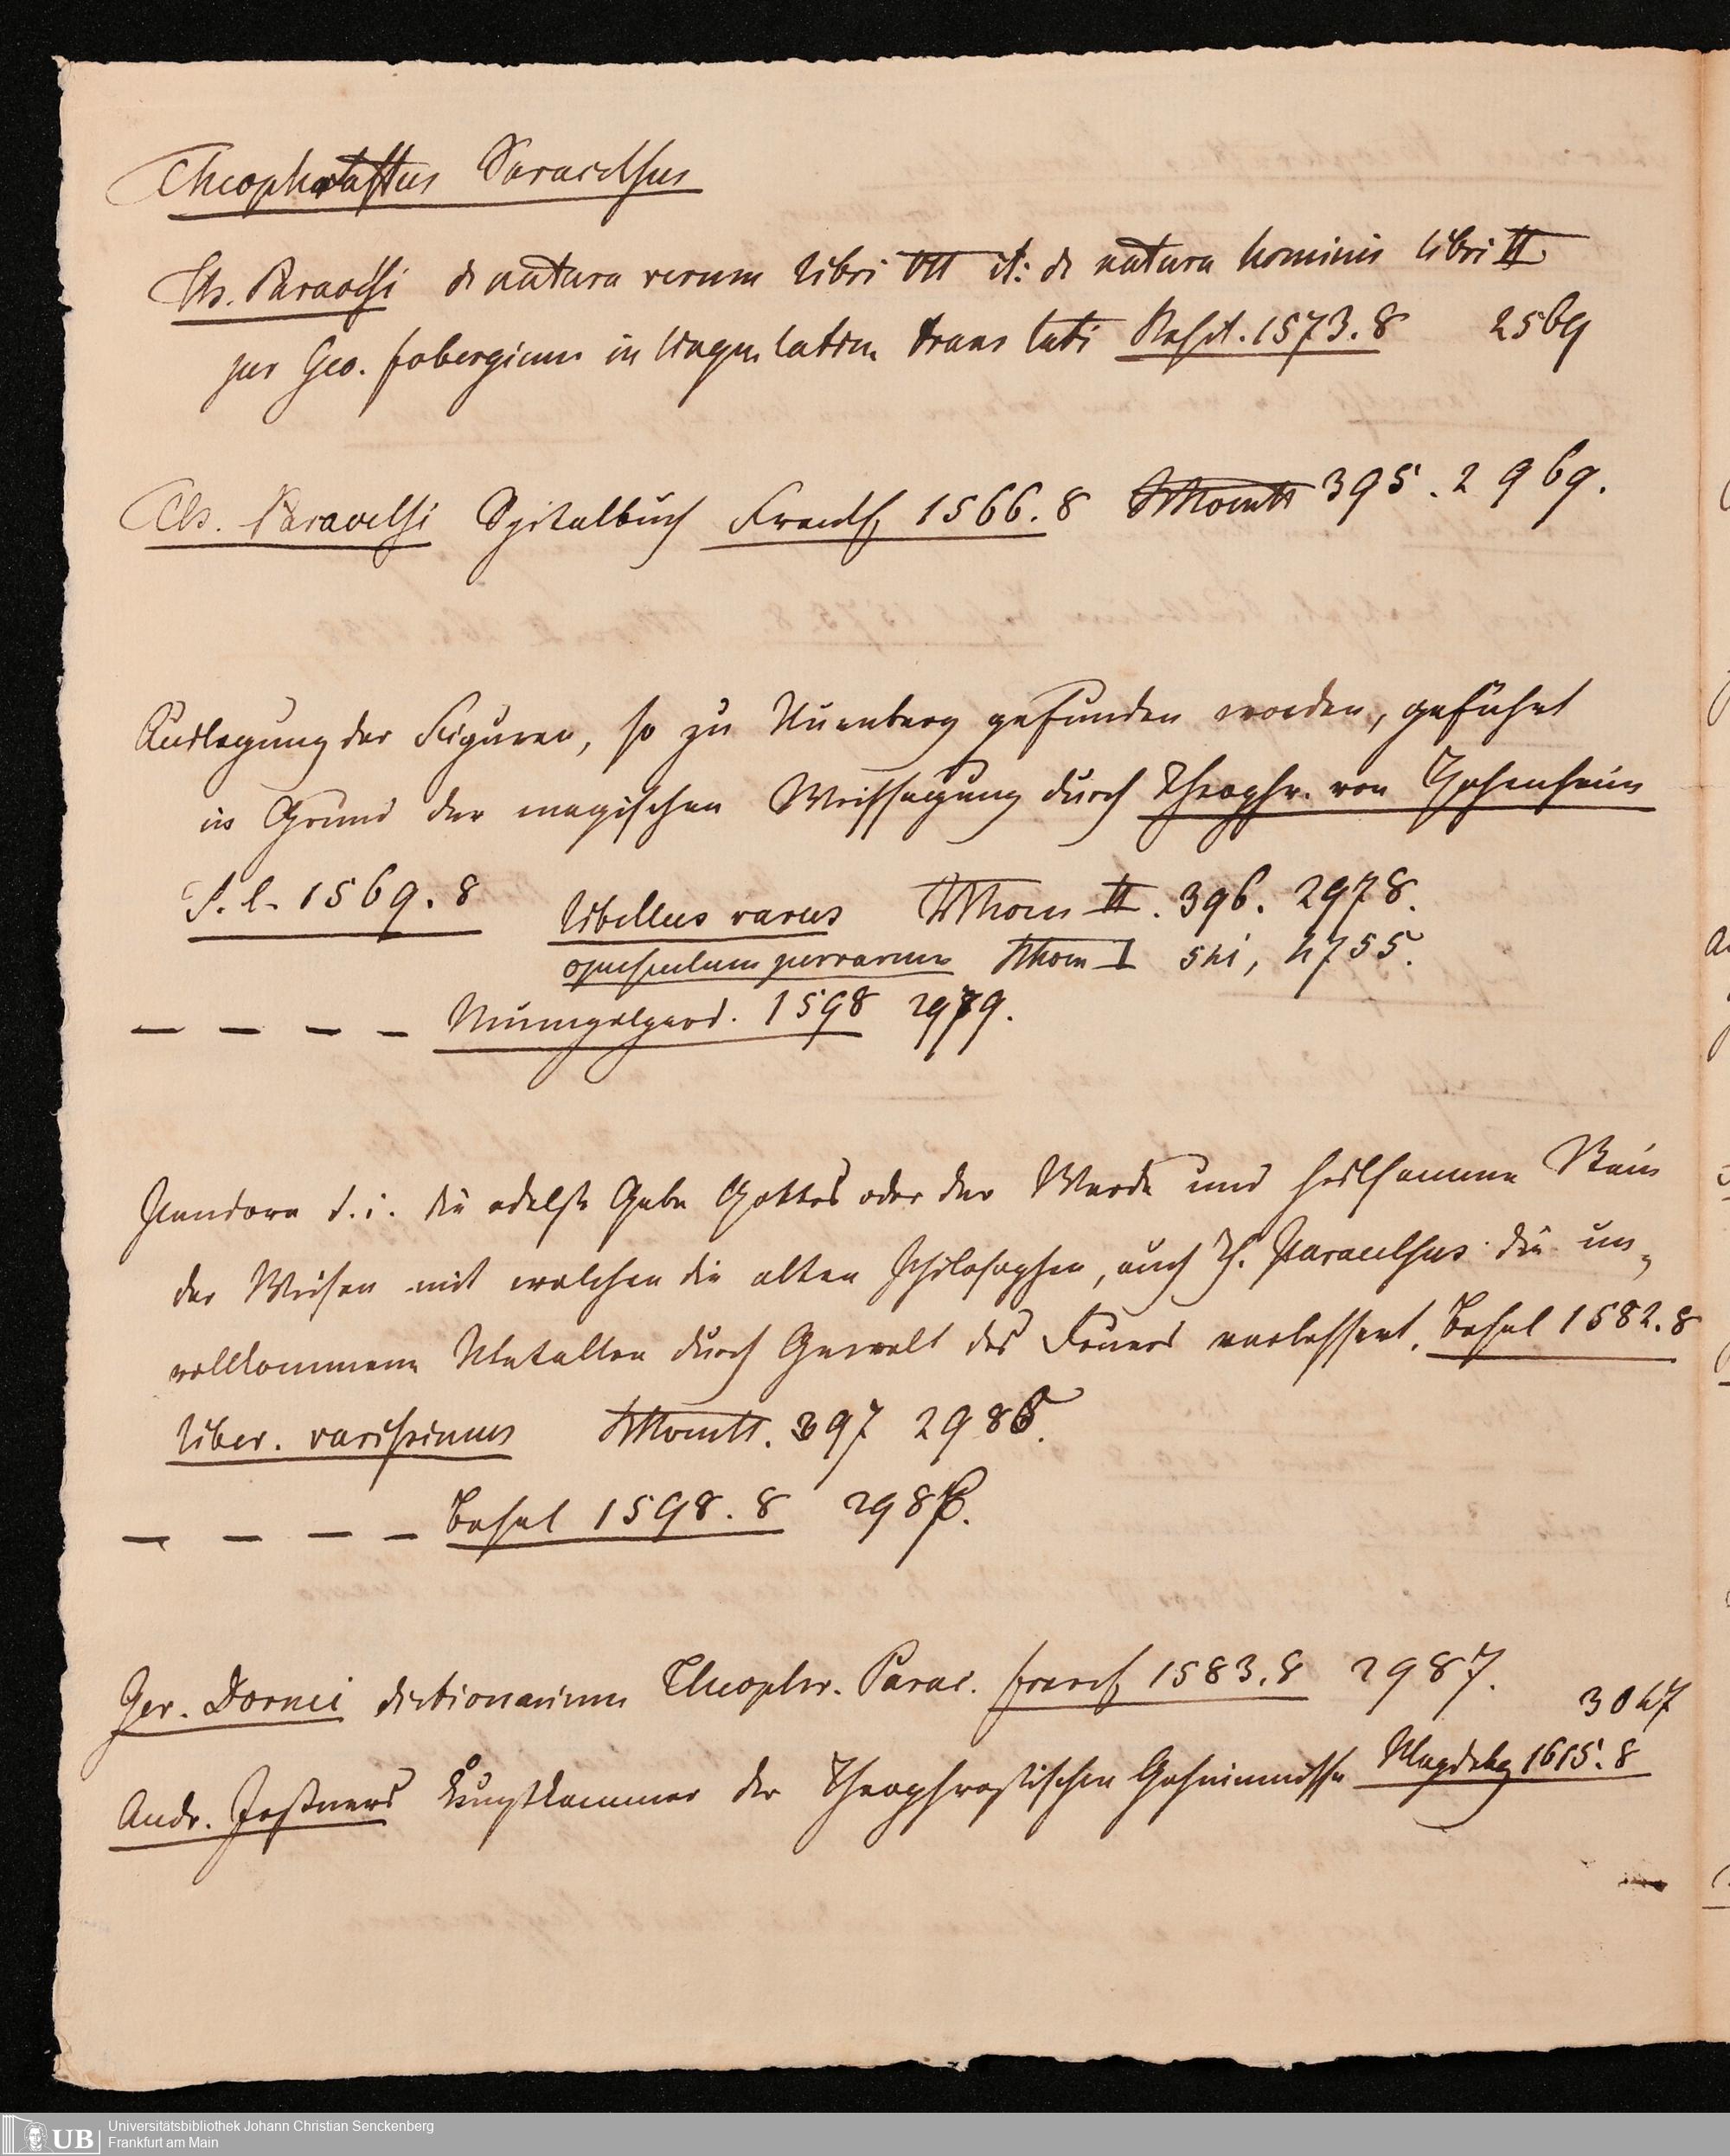 Theophrastus Paracelsus
Th. Paracelsi de natura rerum libri VII it: de natura hominis libri II
per Geo. forbergium in lingu latin translati Basil. 1573. 8 2569
Th. Paracelsi Spitalbuch Francf 1566. 8 395. 2969.
Auslegung der Figuren, so zu Nurnberg gefunden worden, geführt
in Grund der magischen Weissagung durch Theophr. von Hohenheim
S. l. 1569. 8 libellus rarus II. 396. 2978.
opusculum perrarum I 541, 4755.
— — — — Mümpelgard. 1598 2979.
Pandora d. i. die edelste Gabe Gottes oder der Werde und heilsamme Stein
der Weisen mit welchen die alten Philosophen, auch Th. Paracelsus die un-
vollkommene Metallen durch Gewalt des Feuers verbessert. Basel 1582. 8
liber. rarissimus 397 2985.
— — — — Basel 1598. 8 2986.
Ger. Dornei dictionarium Theophr. Parac. francf 1583. 8 2987.
3047
Andr. Kunstkammer der Theophrastischen Geheimnisse Magdebg 1615. 8
Universitätsbibliothek Johann Christian Senckenberg
UB Frankfurt am Main